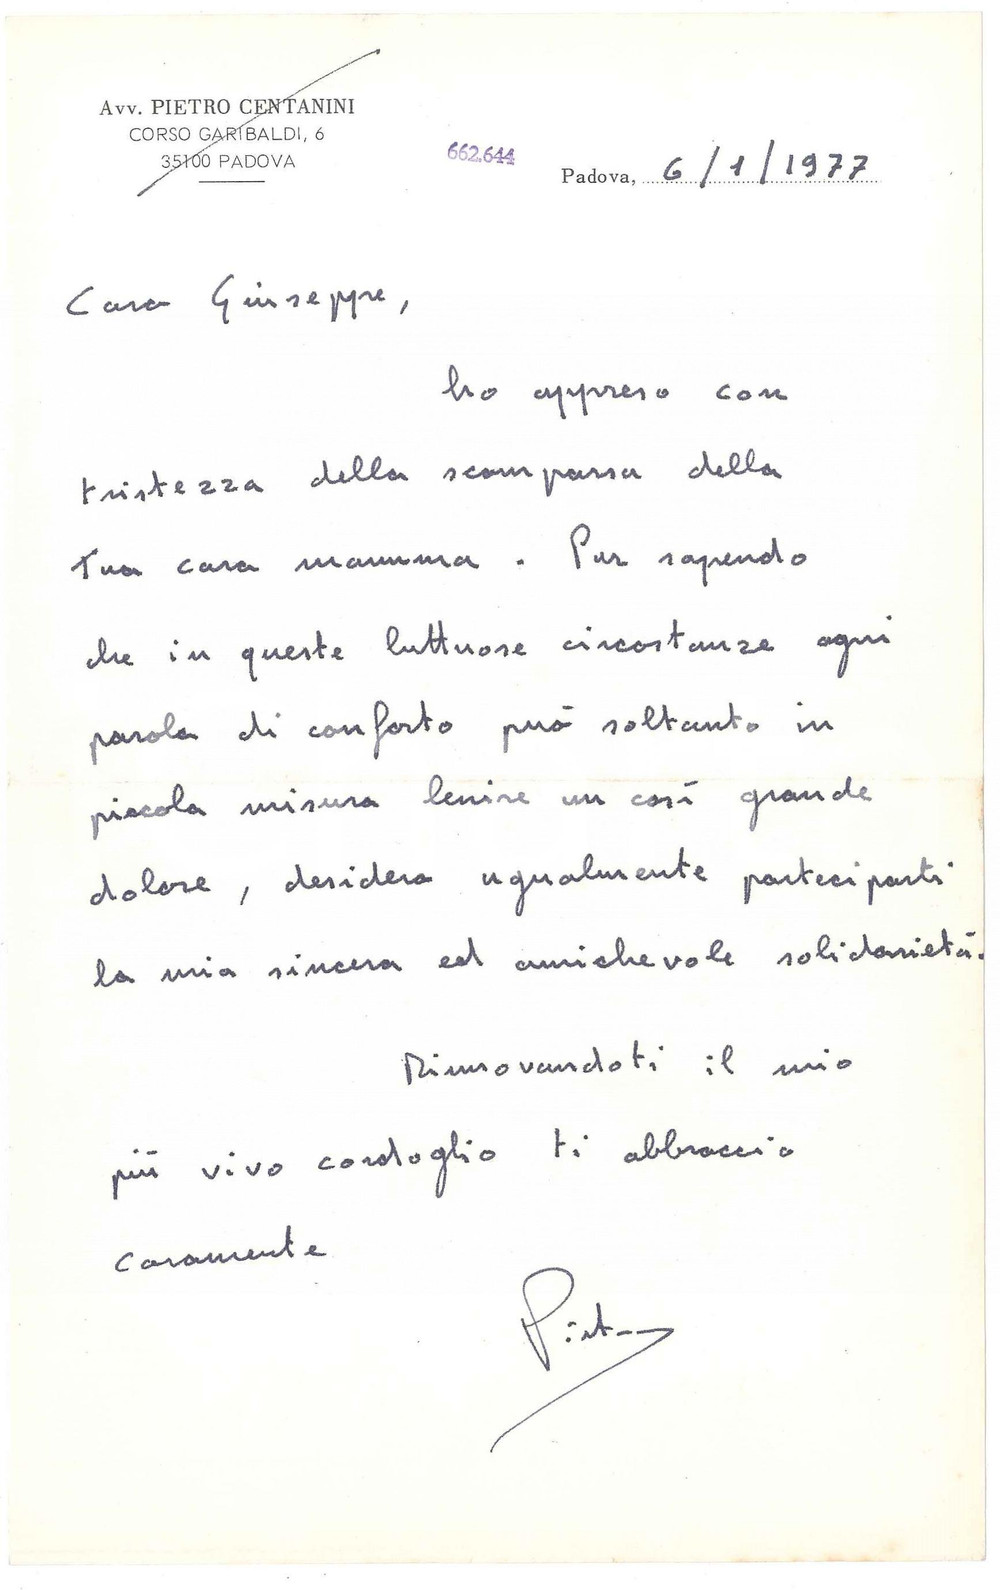 Avv. PIETRO CENTANINI
CORSO GARIBALDI, 6
35100 PADOVA
662.644
Padova, 6/1/1977
Caro Giuseppe,
ho appreso con
tristezza della scomparsa della
Tua cara mamma. Pur sapendo
che in queste luttuose circostanze ogni
parola di conforto può soltanto in
piccola misura lenire un così grande
dolore, desidero ugualmente parteciparti
la mia sincera ed amichevole solidarietà.
Rinnovandoti il mio
più vivo cordoglio ti abbraccio
caramente
Pietro